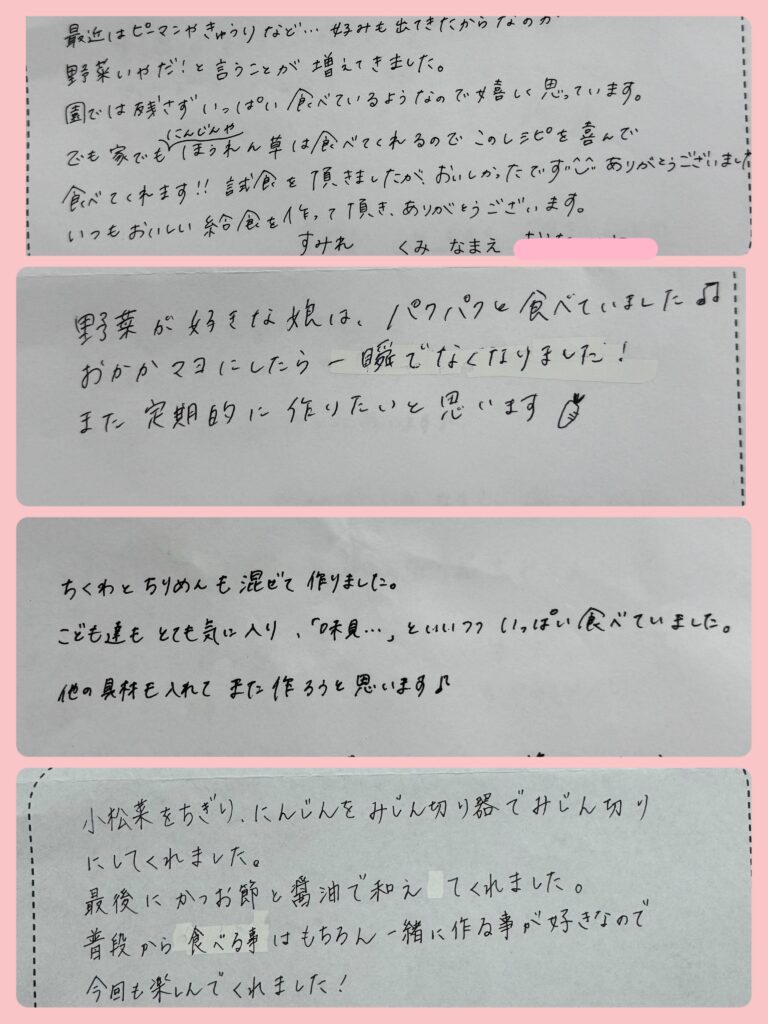 最近はピーマンやきゅうりなど… 好みも出てきたからなのか
野菜いやだ!と言うことが増えてきました。
園では残さずいっぱい食べているようなので嬉しく思っています。
にんじんや
でも家でもほうれん草は食べてくれるのでこのレシピを喜んで
食べてくれます!! 試食を頂きましたが、おいしかったです ありがとうございました
いつもおいしい給食を作って頂き、ありがとうございます。
すみれ くみ なまえ
野菜が好きな娘は、パクパクと食べていました♫
おかかマヨにしたら一瞬でなくなりました!
また定期的に作りたいと思います
ちくわとちりめんも混ぜて作りました。
こども達もとても気に入り、「味見…」といいつついっぱい食べていました。
他の具材も入れてまた作ろうと思います♪
小松菜をちぎり、にんじんをみじん切り器でみじん切り
にしてくれました。
最後にかつお節と醤油で和えてくれました。
普段から食べる事はもちろん一緒に作る事が好きなので
今回も楽しんでくれました!